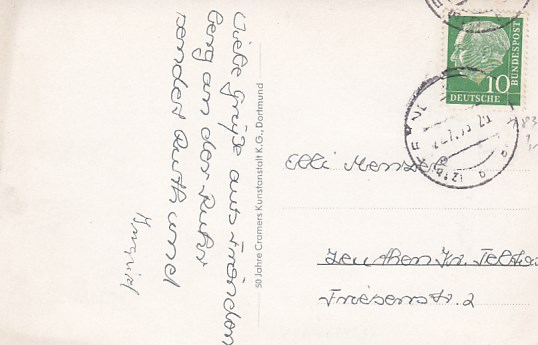 Liebe Grüße aus Frönden
berg an der Ruhr
sendet Ruth und
50 Jahre Cramers Kunstanstalt K.G., Dortmund
10
DEUTSCHE
BUNDESPOST
Elli Menzel
Zeuthen Kr. Teltow
Friesenstr. 2